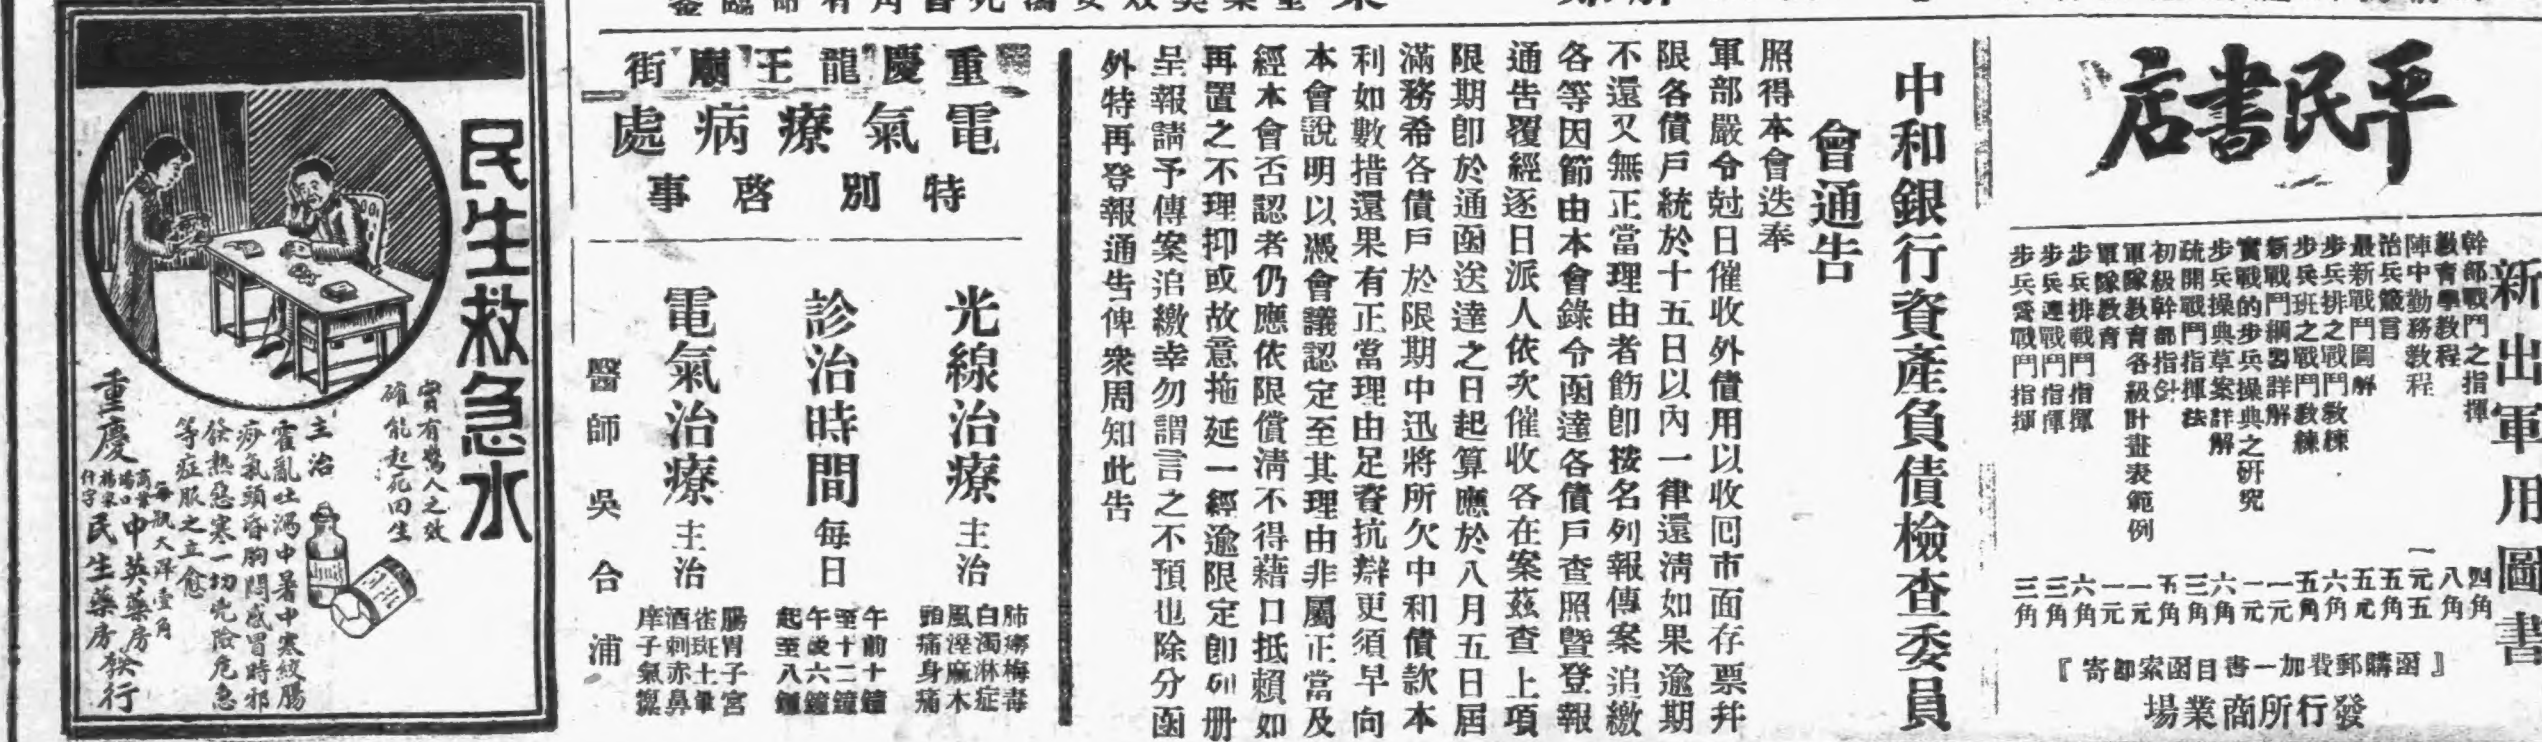 平民書店
新出軍用圖書
幹部戰鬥之指揮 四角
教育學教程 八角
陣中勤務教程 一元五
治兵箴言 五角
最新戰鬥圖解 五元
步兵排之戰鬥教練 六角
步兵班之戰鬥教練 五角
新戰鬥綱要詳解 一元
實戰的步兵操典之研究 一元
步兵操典草案詳解 六角
疏開戰鬥指揮法 三角
初級幹部指針 五角
軍隊教育各級計畫表範例 一元
軍隊教育 一元
步兵排戰鬥指揮 六角
步兵連戰鬥指揮 三角
步兵營戰鬥指揮 三角
『函購郵費加一書目函索即寄』
發行所商業場
中和銀行資產負債檢查委員
會通告
照得本會迭奉
軍部嚴令尅日催收外債用以收囘市面存票幷
限各債戶統於十五日以內一律還淸如果逾期
不還又無正當理由者飭卽按名列報傳案追繳
各等因節由本會錄令函達各債戶查照曁登報
通告覆經逐日派人依次催收各在案茲查上項
限期卽於通函送達之日起算應於八月五日屆
滿務希各債戶於限期中迅將所欠中和債款本
利如數措還果有正當理由足資抗辯更須早向
本會說明以憑會議認定至其理由非屬正當及
經本會否認者仍應依限償淸不得藉口抵賴如
再置之不理抑或故意拖延一經逾限定卽列册
呈報請予傳案追繳幸勿謂言之不預也除分函
外特再登報通告俾衆周知此告
重慶龍王廟街
電氣療病處
特別啓事
光線治療 主治
肺癆梅毒
白濁淋症
風溼麻木
頭痛身痛
診治時間 每日
午前十鐘
至十二鐘
午後六鐘
起至八鐘
電氣治療 主治
腸胃子宮
雀斑土車
酒刺赤鼻
痒子氣瘰
醫師 吳合浦
民生救急水
實有驚人之效
確能起死回生
主治
霍亂吐瀉中暑中寒絞腸
痧氣頭昏胸悶感冒時邪
發熱惡寒一切兇險危急
等症服之立愈
每瓶大洋壹角
重慶
商業場口 中英藥房
楊家什字 民生藥房
發行